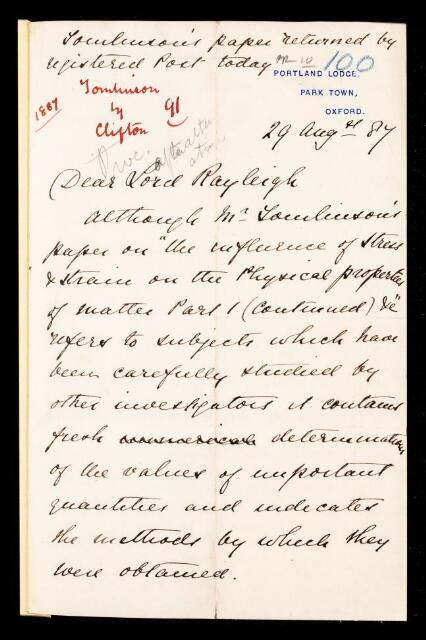 Tomlinson's paper returned by
registered Post today
100
PORTLAND LODGE,
PARK TOWN,
OXFORD.
1887
Tomlinson
by
Clifton
91
Proc.
29 Augst 87
Dear Lord Rayleigh
Although Mr Tomlinson's
paper on "the influence of Stress
& strain on the Physical properties
of matter Part I (continued) &c"
refers to subjects which have
been carefully studied by
other investigators it contains
fresh numerical determinations
of the values of important
quantities and indicates
the methods by which they
were obtained.